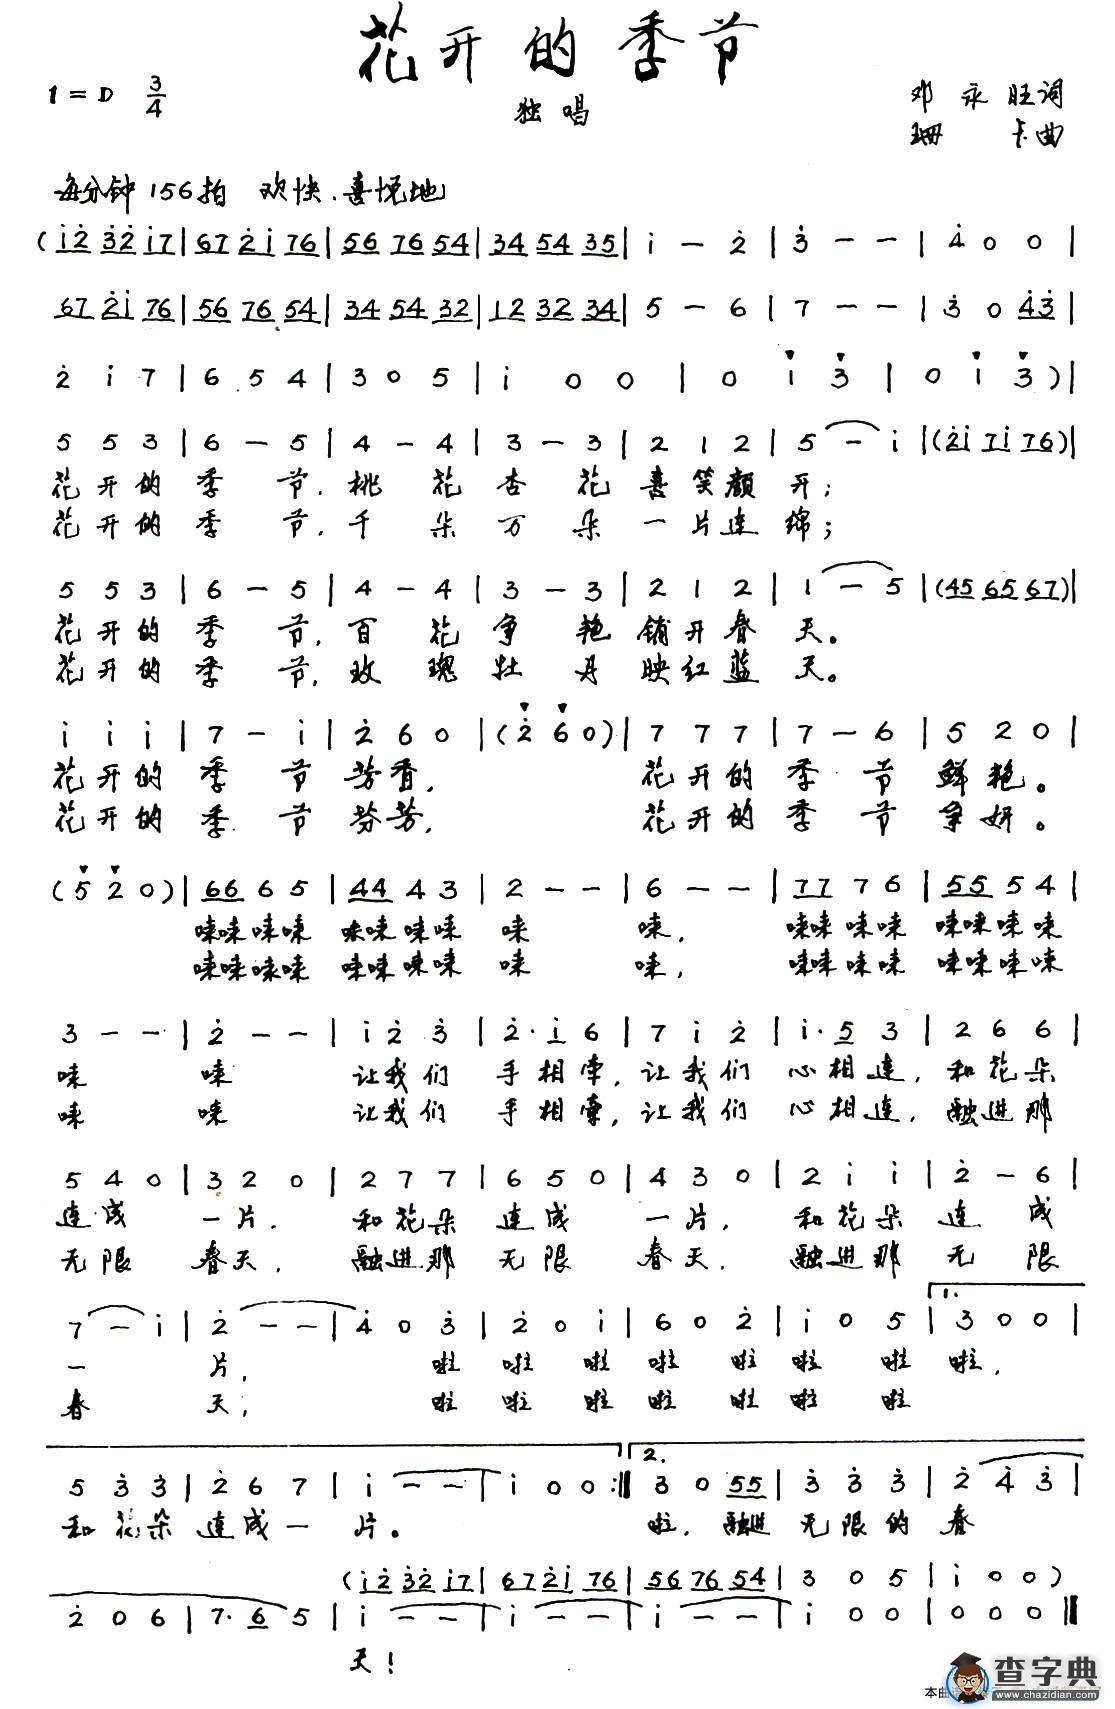 花开的季节
1=D 3/4
独唱
邓永旺词
珊卡曲
每分钟156拍 欢快、喜悦地
(i̇2̇ 3̇2̇ i̇7|67 2̇i̇ 76|56 76 54|34 54 35|i̇ - 2̇|3̇ - -|4̇ 0 0|
67 2̇i̇ 76|56 76 54|34 54 32|12 32 34|5 - 6|7 - -|3̇ 0 4̇3̇|
2̇ i̇ 7|6 5 4|3 0 5|i̇ 0 0|0 i̇ 3̇|0 i̇ 3̇)|
5 5 3|6 - 5|4 - 4|3 - 3|2 1 2|5 - i̇|(2̇i̇ 7i̇ 76)|
花开的季节,桃花杏花喜笑颜开;
花开的季节,千朵万朵一片连绵;
5 5 3|6 - 5|4 - 4|3 - 3|2 1 2|1 - 5|(45 65 67)|
花开的季节,百花争艳铺开春天。
花开的季节,玫瑰牡丹映红蓝天。
i̇ i̇ i̇|7 - i̇|2̇ 6 0|(2̇ 6 0)|7 7 7|7 - 6|5 2 0|
花开的季节芳香, 花开的季节鲜艳。
花开的季节芬芳, 花开的季节争妍。
(5 2 0)|66 6 5|44 4 3|2 - -|6 - -|77 7 6|55 5 4|
唻唻唻唻 唻唻唻唻 唻 唻, 唻唻唻唻 唻唻唻唻
唻唻唻唻 唻唻唻唻 唻 唻, 唻唻唻唻 唻唻唻唻
3 - -|2̇ - -|i̇ 2̇ 3̇|2̇· i̇ 6|7 i̇ 2̇|i̇· 5 3|2 6 6|
唻 唻 让我们手相牵,让我们心相连,和花朵
唻 唻 让我们手相牵,让我们心相连,融进那
5 4 0|3 2 0|2 7 7|6 5 0|4 3 0|2 i̇ i̇|2̇ - 6|
连成一片,和花朵连成一片,和花朵连成
无限春天,融进那无限春天,融进那无限
1.
7 - i̇|2̇ - -|4̇ 0 3̇|2̇ 0 i̇|6 0 2̇|i̇ 0 5|3 0 0|
一片, 啦 啦 啦 啦 啦 啦 啦 啦,
春天; 啦 啦 啦 啦 啦 啦 啦
2.
5 3̇ 3̇|2̇ 6 7|i̇ - -|i̇ 0 0:‖3 0 55|3̇ 3̇ 3̇|2̇ 4̇ 3̇|
和花朵连成一片。 啦,融进无限的春
(i̇2̇ 3̇2̇ i̇7|67 2̇i̇ 76|56 76 54|3 0 5|i̇ 0 0)
2̇ 0 6|7· 6 5|i̇ - -|i̇ - -|i̇ - -|i̇ 0 0|0 0 0‖
天!
查字典
www.chazidian.com
本曲